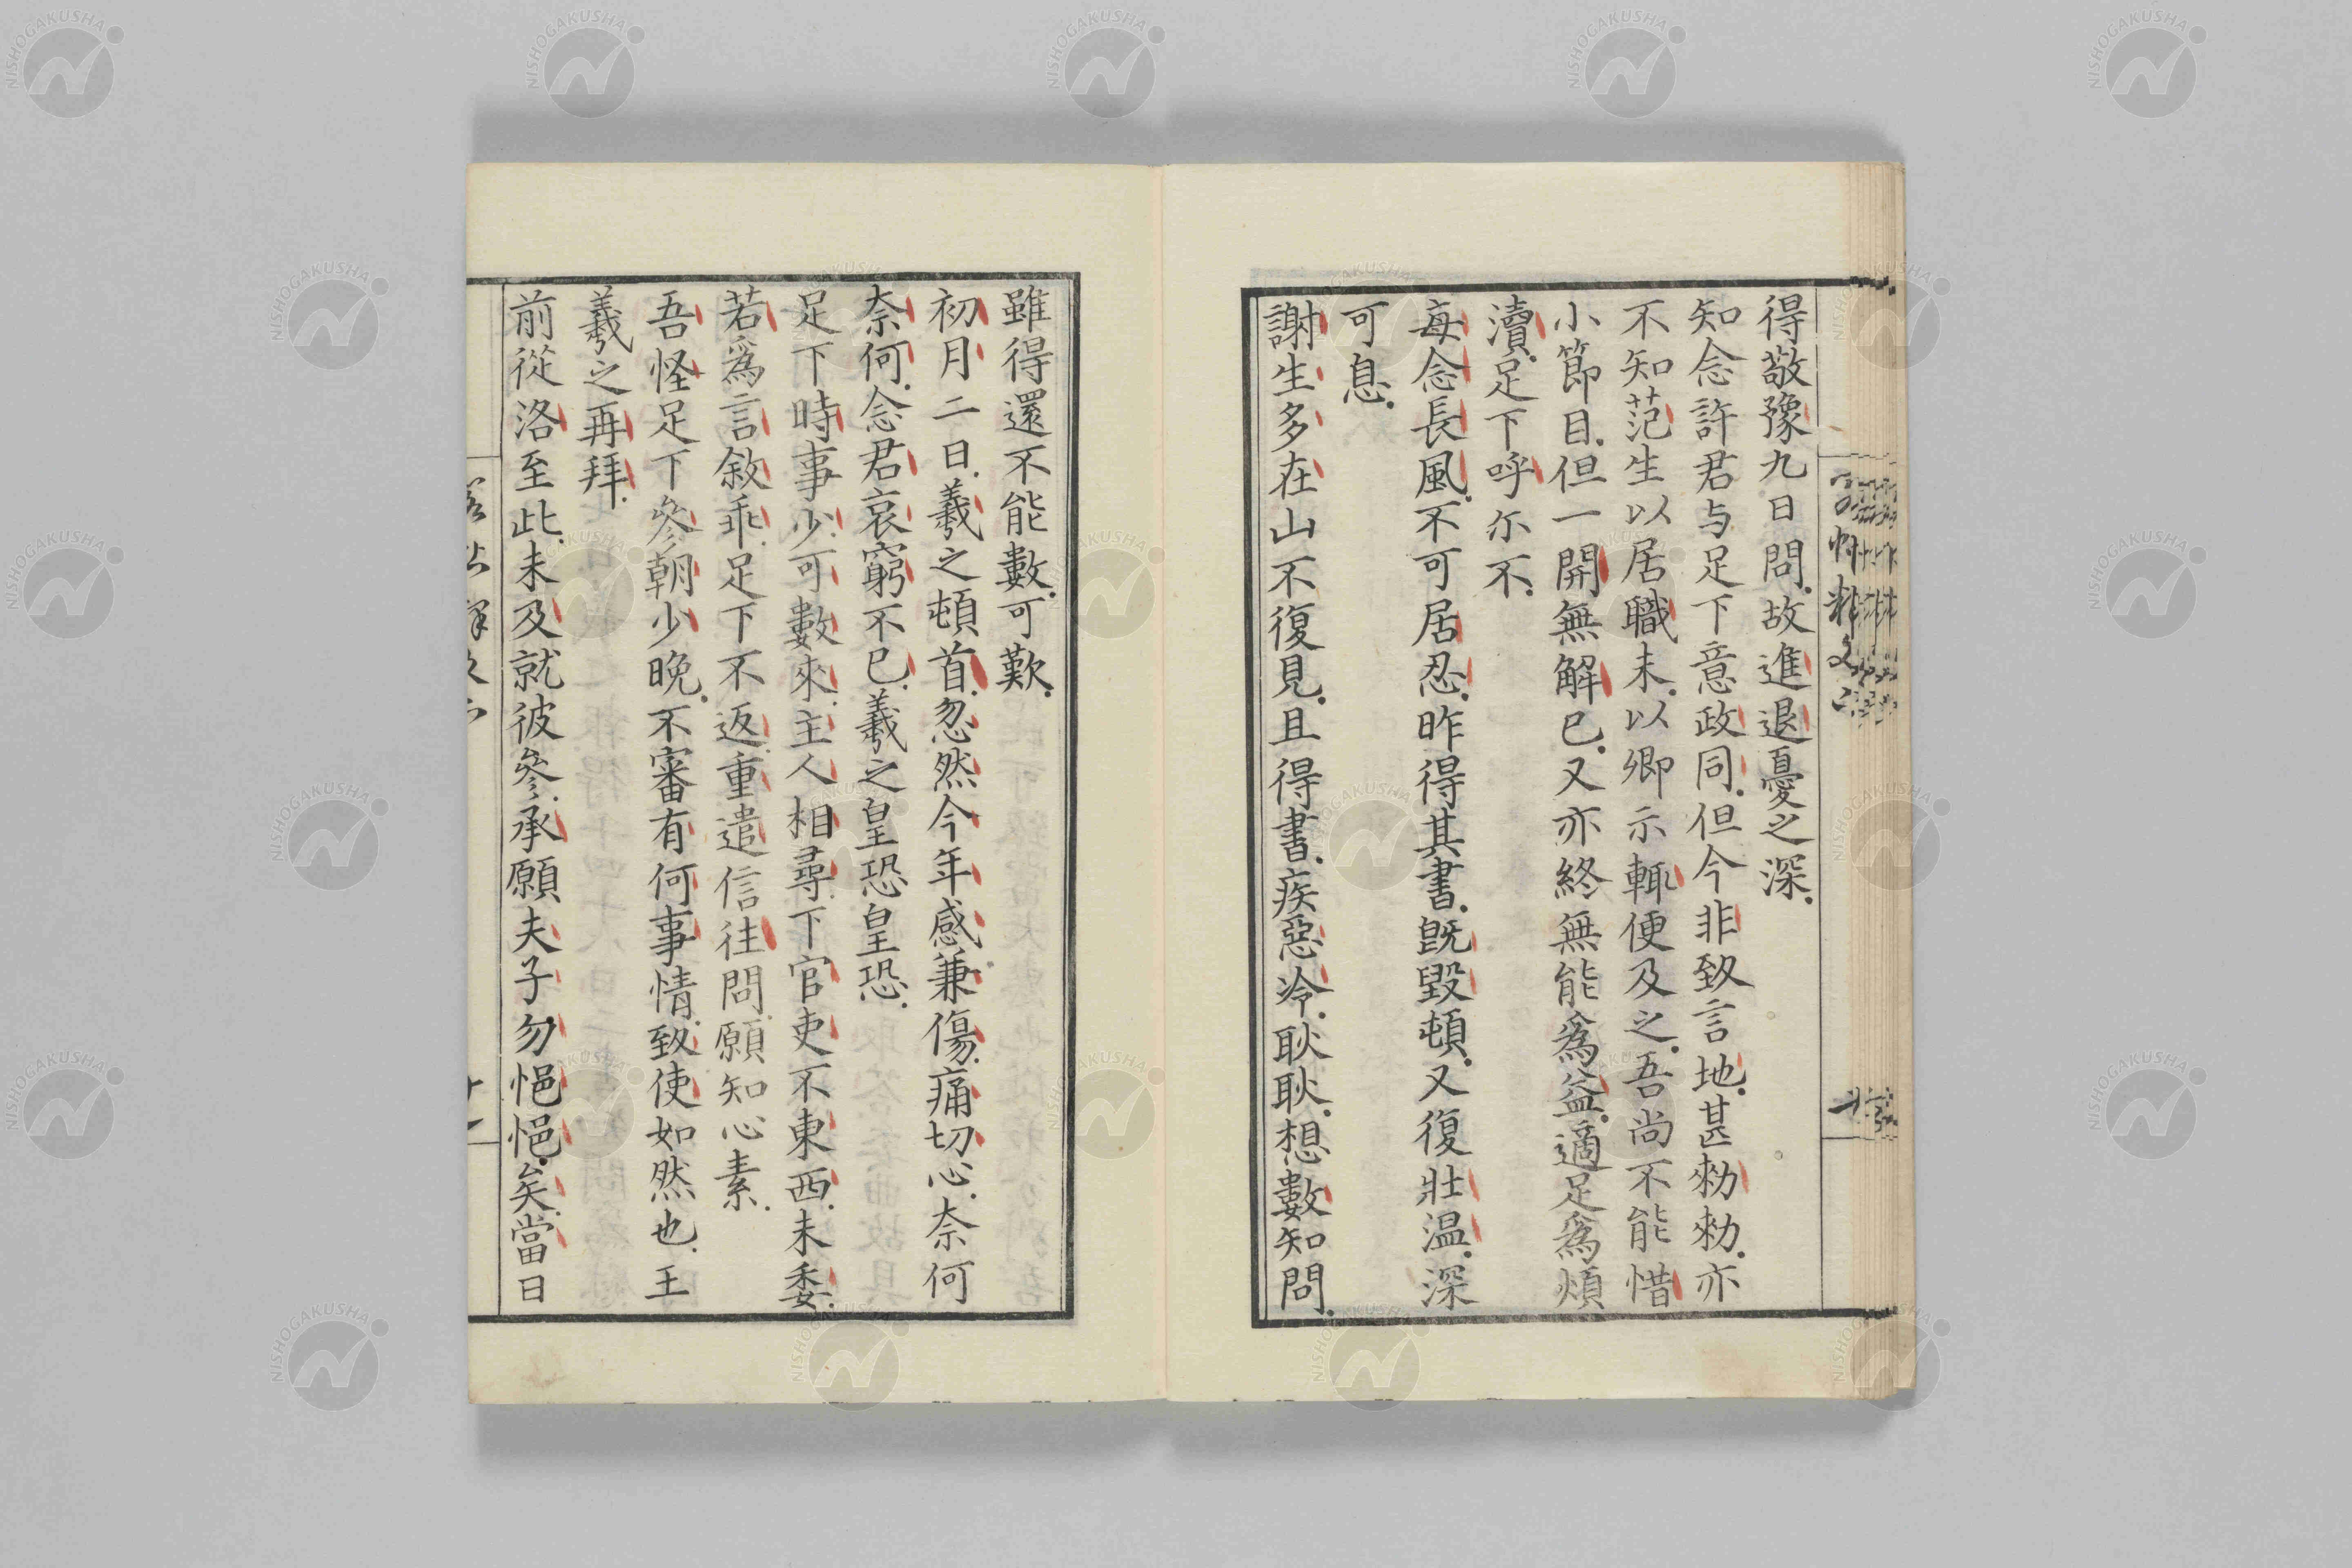 得敬豫九日問故進退憂之深
知念許君与足下意政同但今非致言地甚勑勑亦
不知范生以居職未以卿示輒便及之吾尚不能惜
小節目但一開無解已又亦終無能爲益適足爲煩
瀆足下呼尓不
每念長風不可居忍昨得其書既毀頓又復壯温深
可息
謝生多在山不復見且得書疾惡冷耿耿想數知問
雖得還不能數可歎
初月二日羲之頓首忽然今年感兼傷痛切心奈何
奈何念君哀窮不已羲之皇恐皇恐
足下時事少可數來主人相尋下官吏不東西未委
若爲言敘乖足下不返重遣信往問願知心素
吾怪足下參朝少晚不審有何事情致使如然也王
羲之再拜
前從洛至此未及就彼參承願夫子勿悒悒矣當日
NISHOGAKUSHA